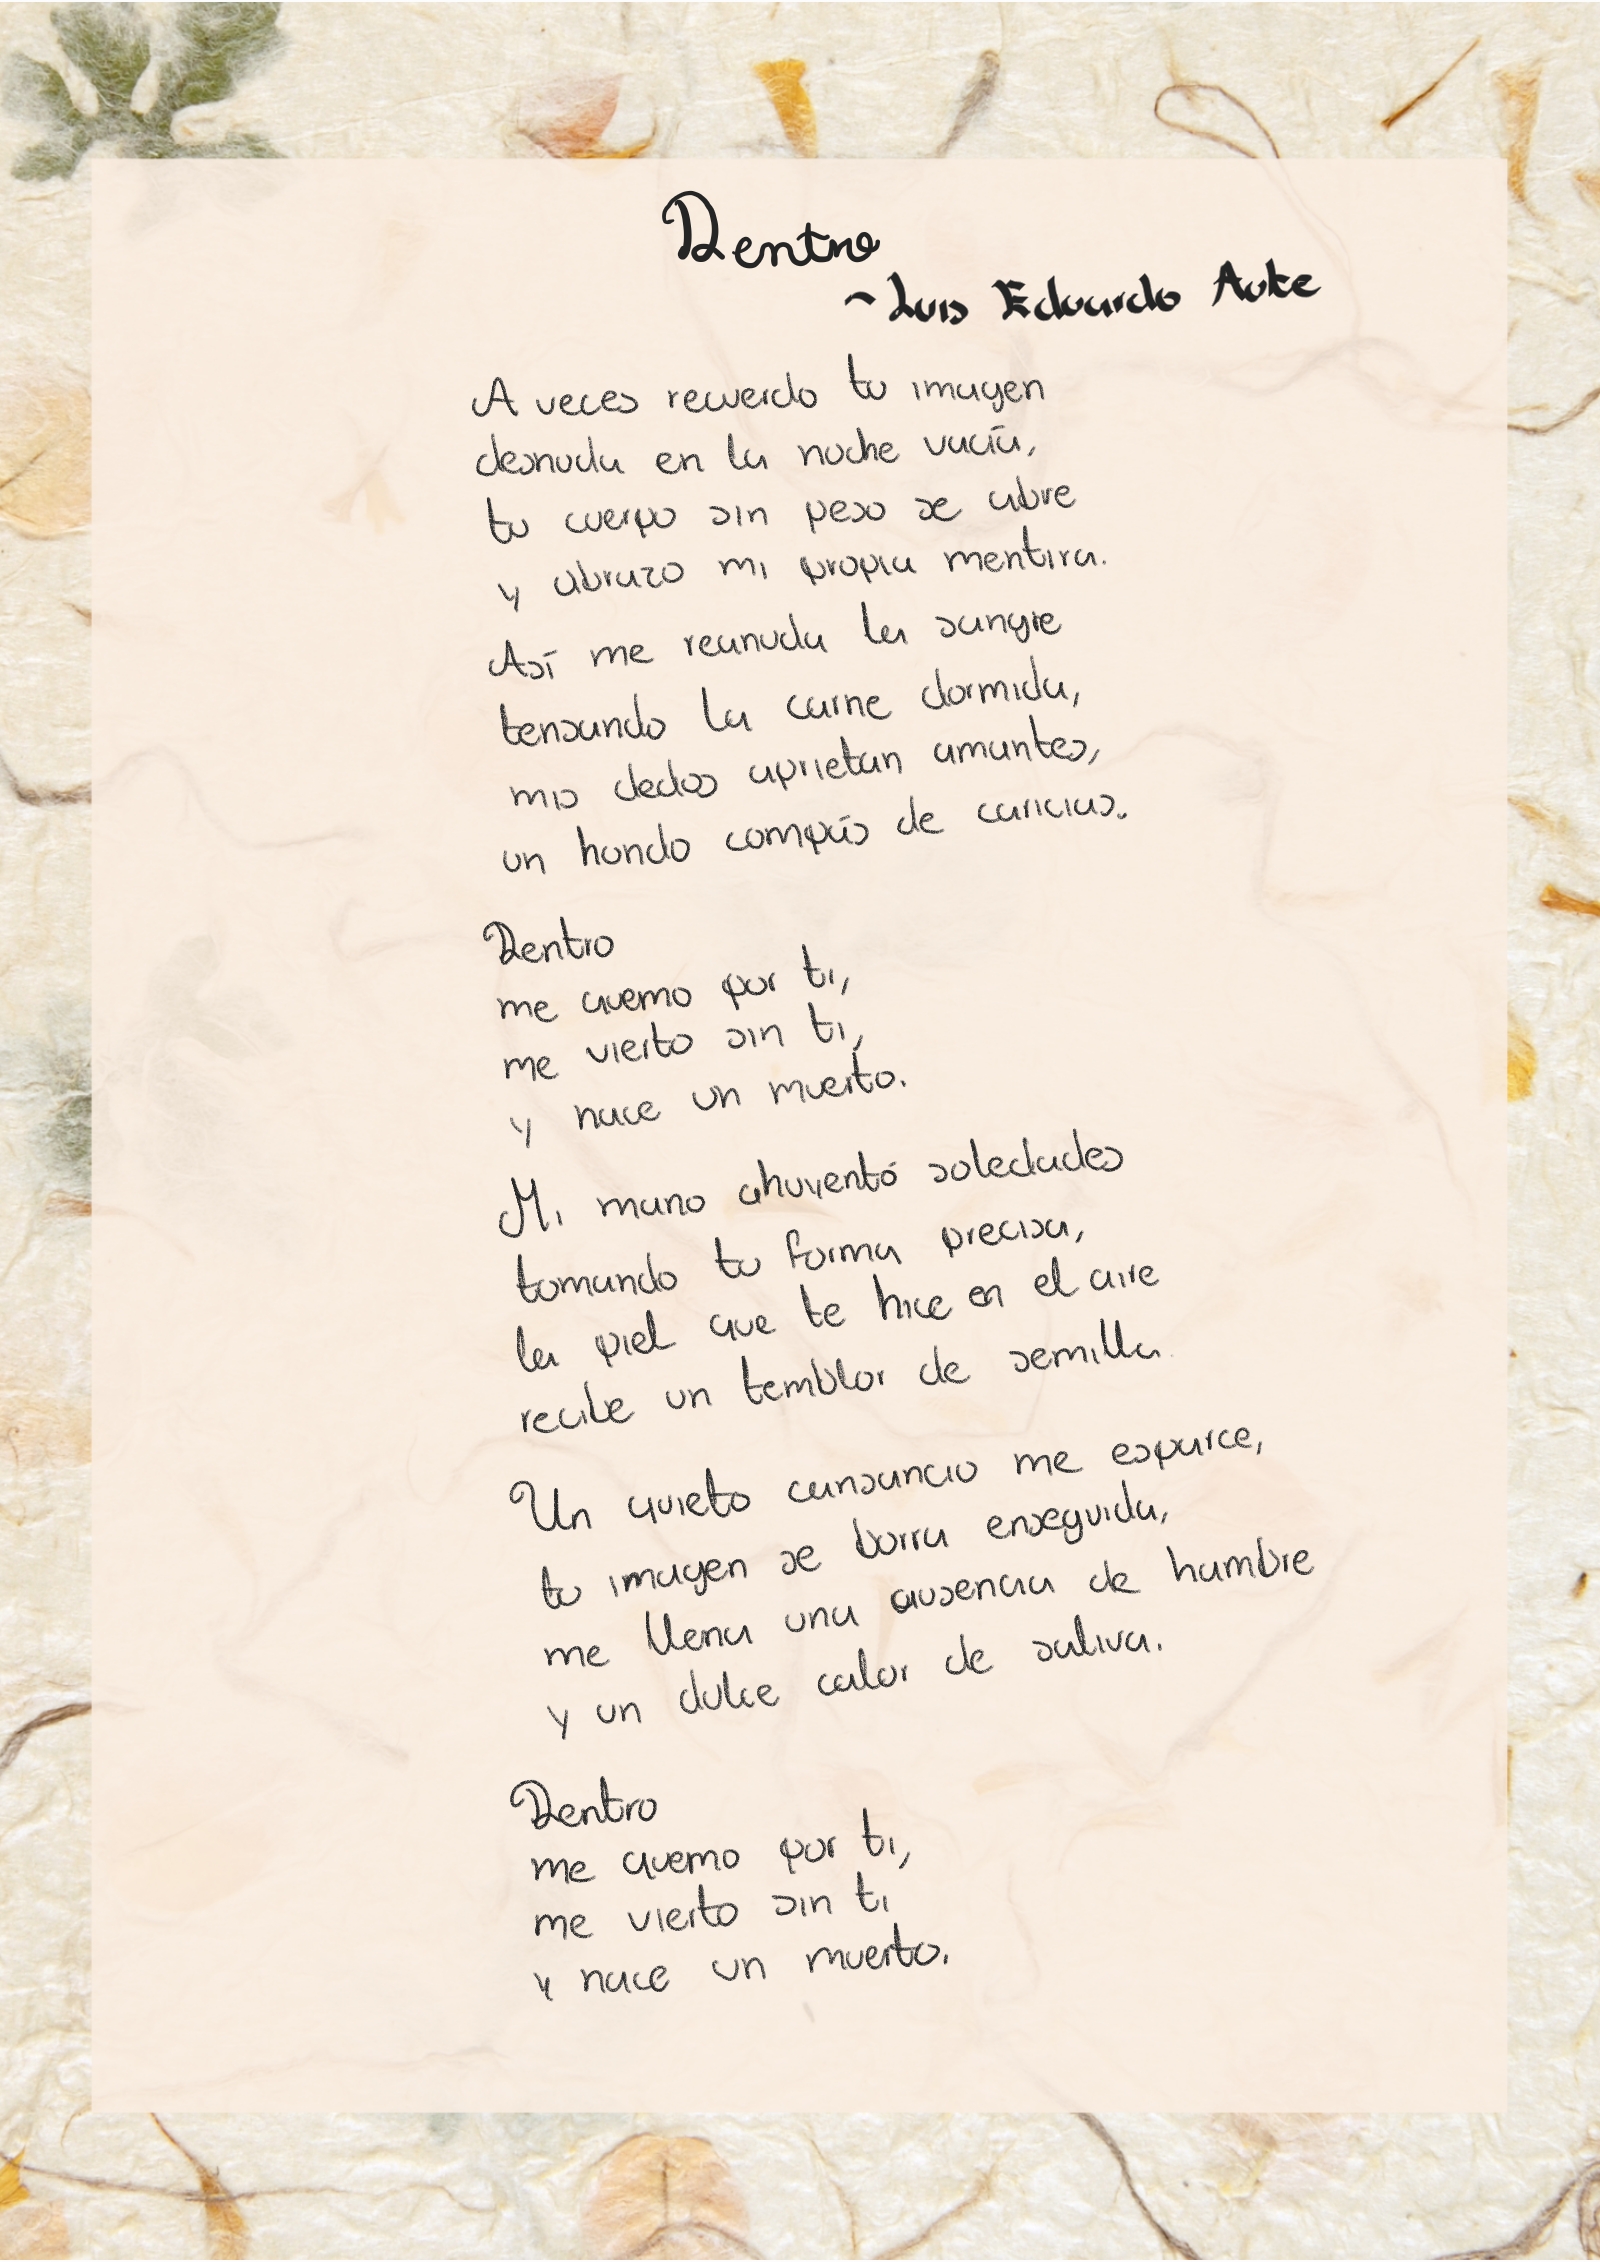 Dentro
~Luis Eduardo Aute
A veces recuerdo tu imagen
desnuda en la noche vacía,
tu cuerpo sin peso se abre
y abrazo mi propia mentira.
Así me reanuda la sangre
tensando la carne dormida,
mis dedos aprietan amantes,
un hondo compás de caricias.
Dentro
me quemo por ti,
me vierto sin ti,
y nace un muerto.
Mi mano ahuyentó soledades
tomando tu forma precisa,
la piel que te hice en el aire
recibe un temblor de semilla.
Un quieto cansancio me esparce,
tu imagen se borra enseguida,
me llena una ausencia de hambre
y un dulce calor de saliva.
Dentro
me quemo por ti,
me vierto sin ti
y nace un muerto.